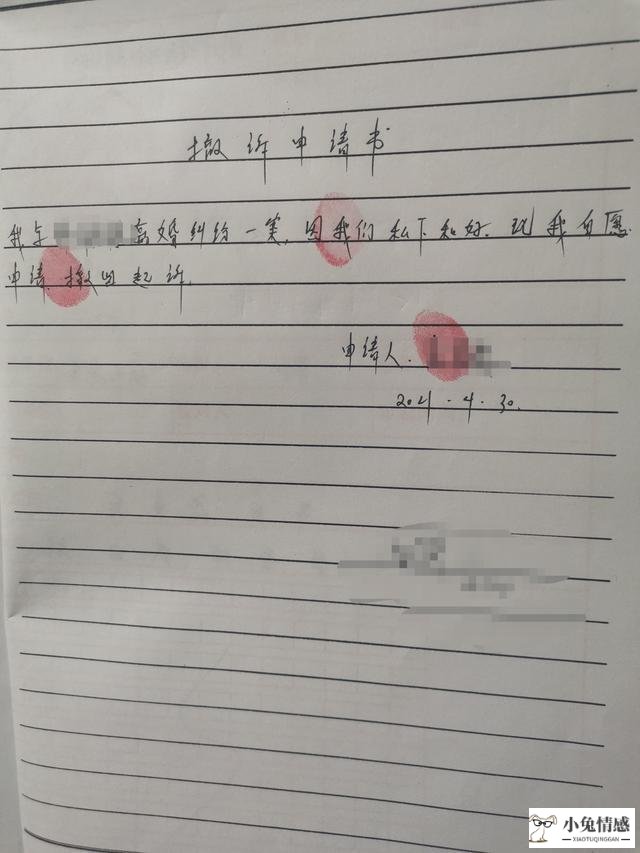 撤诉申请书
我与 离婚纠纷一案,因我们私下和好.现我自愿
申请撤回起诉.
申请人.
2021.4.30.
小兔情感
XIAOTUQINGGAN